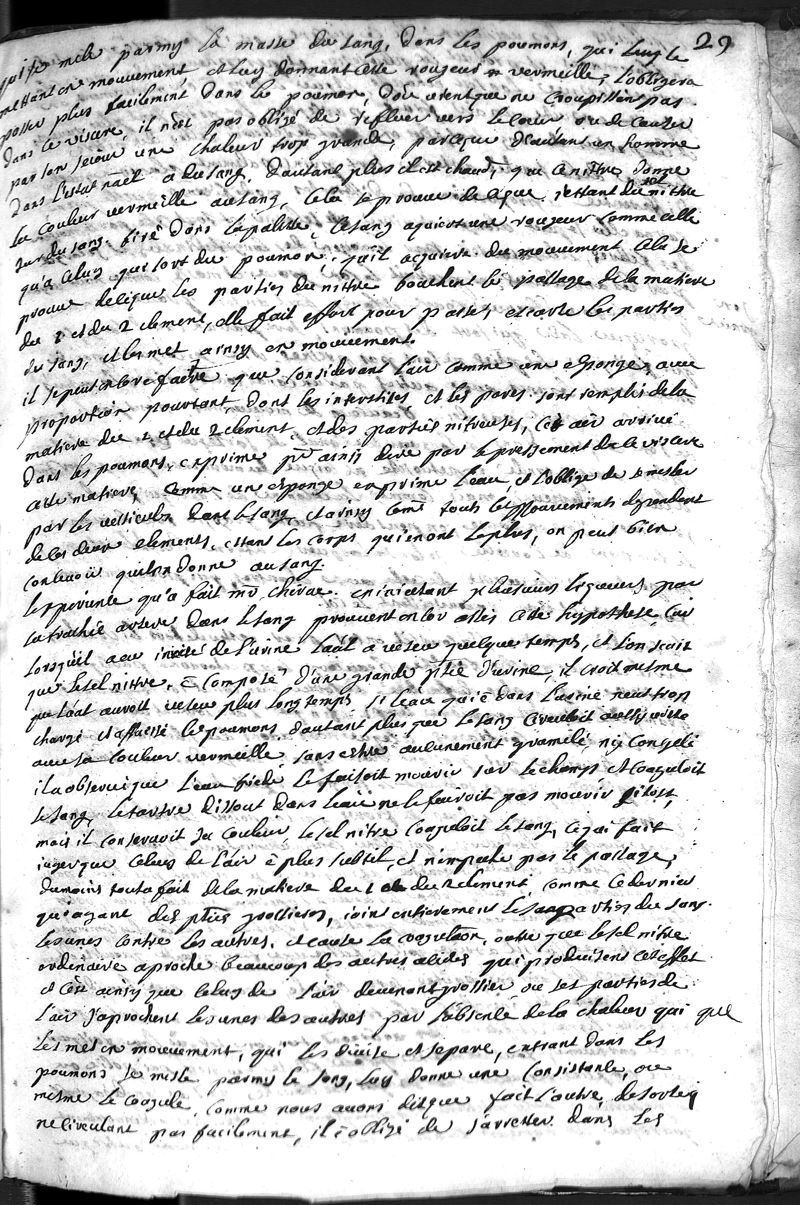 29
qui se mele parmy la masse du sang, dans les poumons, qui luy le
mettant en mouvement, et luy donnant cette rougeur vermeille, l'obligera
passer plus facilement dans le poumon, d'ou vient que ne croupissan pas
dans ce viscere, il n'est pas obligé de refluer vers le coeur ou de causer
par son sejour une chaleur trop grande, parceque d'autant un homme
dans l'estat nāēl a du sang, d'autant plus il est chaud, que ce nittre donne
la couleur vermeille au sang, cela se prouve de ce que jettant du sel nittre
sur du sang tiré dans la palette, le sang aquiert une rougeur comme celle
qu'a celuy qui sort du poumon, qu'il acquiere du mouvement cela se
prouve de ce que les parties du nittre bouchent le passage de la matiere
du 1 et du 2 element, elle fait effort pour passer, et écarte les parties
du sang, et les met ainsy en mouvement.
il se peut encore faire que considerant l'air comme une esponge, avec
proportion pourtant, dont les interstices, et les pores sont remplis de la
matiere du 1 et du 2 element, et des parties nitreuses, cet air arrivé
dans les poumons, exprime pr ainsy dire par le pressement de ce viscere
cette matiere, comme une esponge exprime l'eau, et l'oblige de se mesler
par les vesicules dans le sang, et ainsy come touts les mouvements dependent
de ces deux elements, estant les corps qui en ont le plus, on peut bien
concevoir qu'ils en donne au sang.
l'experience qu'a fait mr chirac en injectant plusieurs liqueurs par
la trachée artere dans le sang prouvent encor assés cette hypothese, car
lorsqu'il a eu injecté de l'urine l'aāl a vescu quelque temps, et l'on scait
que le sel nittre, ē composé d'une grande ptie d'urine, il croit mesme
que l'aāt auroit vescu plus longtemps si l'eau qui ē dans l'urine n'eut trop
chargé et affaissé les poumons d'autant plus que le sang circuloit aussy viste
avec sa couleur vermeille sans estre aucunement grumelé ny congelé
il a observé que l'eau froide le faisoit mourir sur le champ et coaguloit
le sang, le tartre dissout dans l'eau ne le fairoit pas mourir sitost,
mais il conservoit sa couleur, le sel nitre coaguloit le sang, ce qui fait
juger que celuy de l'air ē plus subtil, et n'empeche pas le passage,
du moins tout a fait de la matiere du 1 et du 2 element, comme ce dernier
qui ayant des pties grossieres, joint entierement les parties du sang
les unes contre les autres, et cause la coagulaon, outre que le sel nittre
ordinaire aproche beaucoup des autres acides qui produisent cet effet
et c'est ainsy que celuy de l'air devenant grossier, ou ses parties de
l'air s'aprochent les unes des autres par l'absence de la chaleur qui que
les met en mouvement, qui les divise et separe, entrant dans les
poumons se mesle parmy le sang, luy donne une consistance, ou
mesme le coagule, comme nous avons dit que fait l'autre, de sorte q
ne circulant pas facilement, il ē obligé de s'arrester dans les